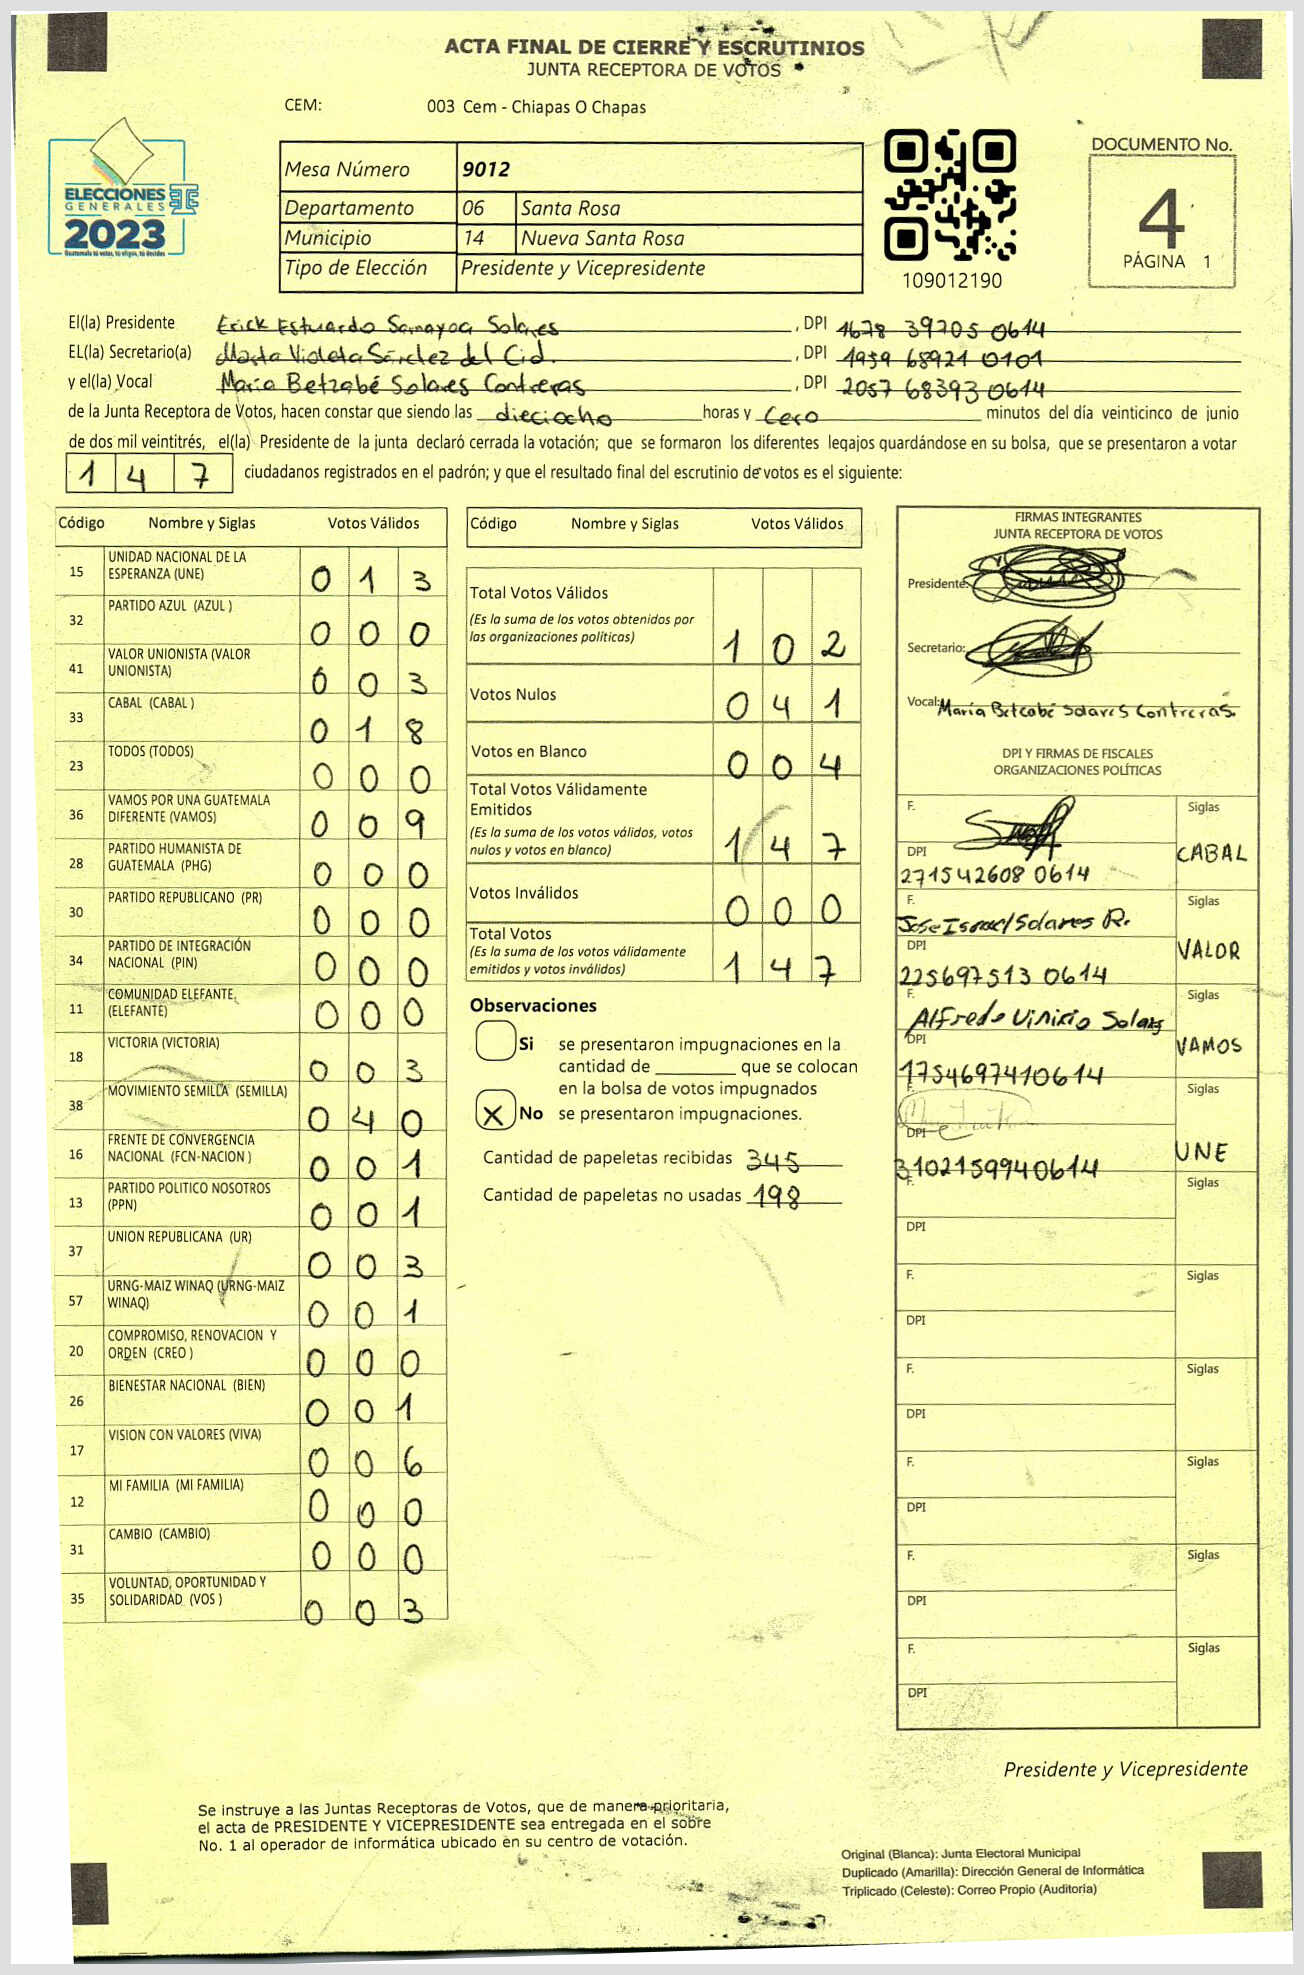 ACTA FINAL DE CIERRE Y ESCRUTINIOS
JUNTA RECEPTORA DE VOTOS
CEM: 003 Cem - Chiapas O Chapas
ELECCIONES
GENERALES
2023
Guatemala tú votas, tú eliges, tú decides
Mesa Número 9012
Departamento 06 Santa Rosa
Municipio 14 Nueva Santa Rosa
Tipo de Elección Presidente y Vicepresidente
109012190
DOCUMENTO No.
4
PÁGINA 1
El(la) Presidente Erick Estuardo Samayoa Solares, DPI 1678 39705 0614
EL(la) Secretario(a) Marta Violeta Sánchez del Cid., DPI 1959 68921 0101
y el(la) Vocal María Betzabé Solares Contreras, DPI 2057 68393 0614
de la Junta Receptora de Votos, hacen constar que siendo las dieciocho horas y Cero minutos del día veinticinco de junio
de dos mil veintitrés, el(la) Presidente de la junta declaró cerrada la votación; que se formaron los diferentes legajos quardándose en su bolsa, que se presentaron a votar
147 ciudadanos registrados en el padrón; y que el resultado final del escrutinio de votos es el siguiente:
Código Nombre y Siglas Votos Válidos
15 UNIDAD NACIONAL DE LA ESPERANZA (UNE) 013
32 PARTIDO AZUL (AZUL ) 000
41 VALOR UNIONISTA (VALOR UNIONISTA) 003
33 CABAL (CABAL ) 018
23 TODOS (TODOS) 000
36 VAMOS POR UNA GUATEMALA DIFERENTE (VAMOS) 009
28 PARTIDO HUMANISTA DE GUATEMALA (PHG) 000
30 PARTIDO REPUBLICANO (PR) 000
34 PARTIDO DE INTEGRACIÓN NACIONAL (PIN) 000
11 COMUNIDAD ELEFANTE (ELEFANTE) 000
18 VICTORIA (VICTORIA) 003
38 MOVIMIENTO SEMILLA (SEMILLA) 040
16 FRENTE DE CONVERGENCIA NACIONAL (FCN-NACION ) 001
13 PARTIDO POLITICO NOSOTROS (PPN) 001
37 UNION REPUBLICANA (UR) 003
57 URNG-MAIZ WINAQ (URNG-MAIZ WINAQ) 001
20 COMPROMISO, RENOVACION Y ORDEN (CREO ) 000
26 BIENESTAR NACIONAL (BIEN) 001
17 VISION CON VALORES (VIVA) 006
12 MI FAMILIA (MI FAMILIA) 000
31 CAMBIO (CAMBIO) 000
35 VOLUNTAD, OPORTUNIDAD Y SOLIDARIDAD (VOS ) 003
Código Nombre y Siglas Votos Válidos
Total Votos Válidos
(Es la suma de los votos obtenidos por
las organizaciones políticas) 102
Votos Nulos 041
Votos en Blanco 004
Total Votos Válidamente
Emitidos
(Es la suma de los votos válidos, votos
nulos y votos en blanco) 147
Votos Inválidos 000
Total Votos
(Es la suma de los votos válidamente
emitidos y votos inválidos) 147
Observaciones
Si se presentaron impugnaciones en la
cantidad de ________ que se colocan
en la bolsa de votos impugnados
X No se presentaron impugnaciones.
Cantidad de papeletas recibidas 345
Cantidad de papeletas no usadas 198
FIRMAS INTEGRANTES
JUNTA RECEPTORA DE VOTOS
Presidente:
Secretario:
Vocal: María Betzabé Solares Contreras.
DPI Y FIRMAS DE FISCALES
ORGANIZACIONES POLÍTICAS
F. Siglas
DPI CABAL
271542608 0614
F. Siglas
Jose Israel Solares R.
DPI VALOR
225697513 0614
F. Siglas
Alfredo Vinirio Solares
DPI VAMOS
1754697410614
F. Siglas
DPI UNE
3102159940614
F. Siglas
DPI
F. Siglas
DPI
F. Siglas
DPI
F. Siglas
DPI
F. Siglas
DPI
F. Siglas
DPI
Presidente y Vicepresidente
Se instruye a las Juntas Receptoras de Votos, que de manera prioritaria,
el acta de PRESIDENTE Y VICEPRESIDENTE sea entregada en el sobre
No. 1 al operador de informática ubicado en su centro de votación.
Original (Blanca): Junta Electoral Municipal
Duplicado (Amarilla): Dirección General de Informática
Triplicado (Celeste): Correo Propio (Auditoría)